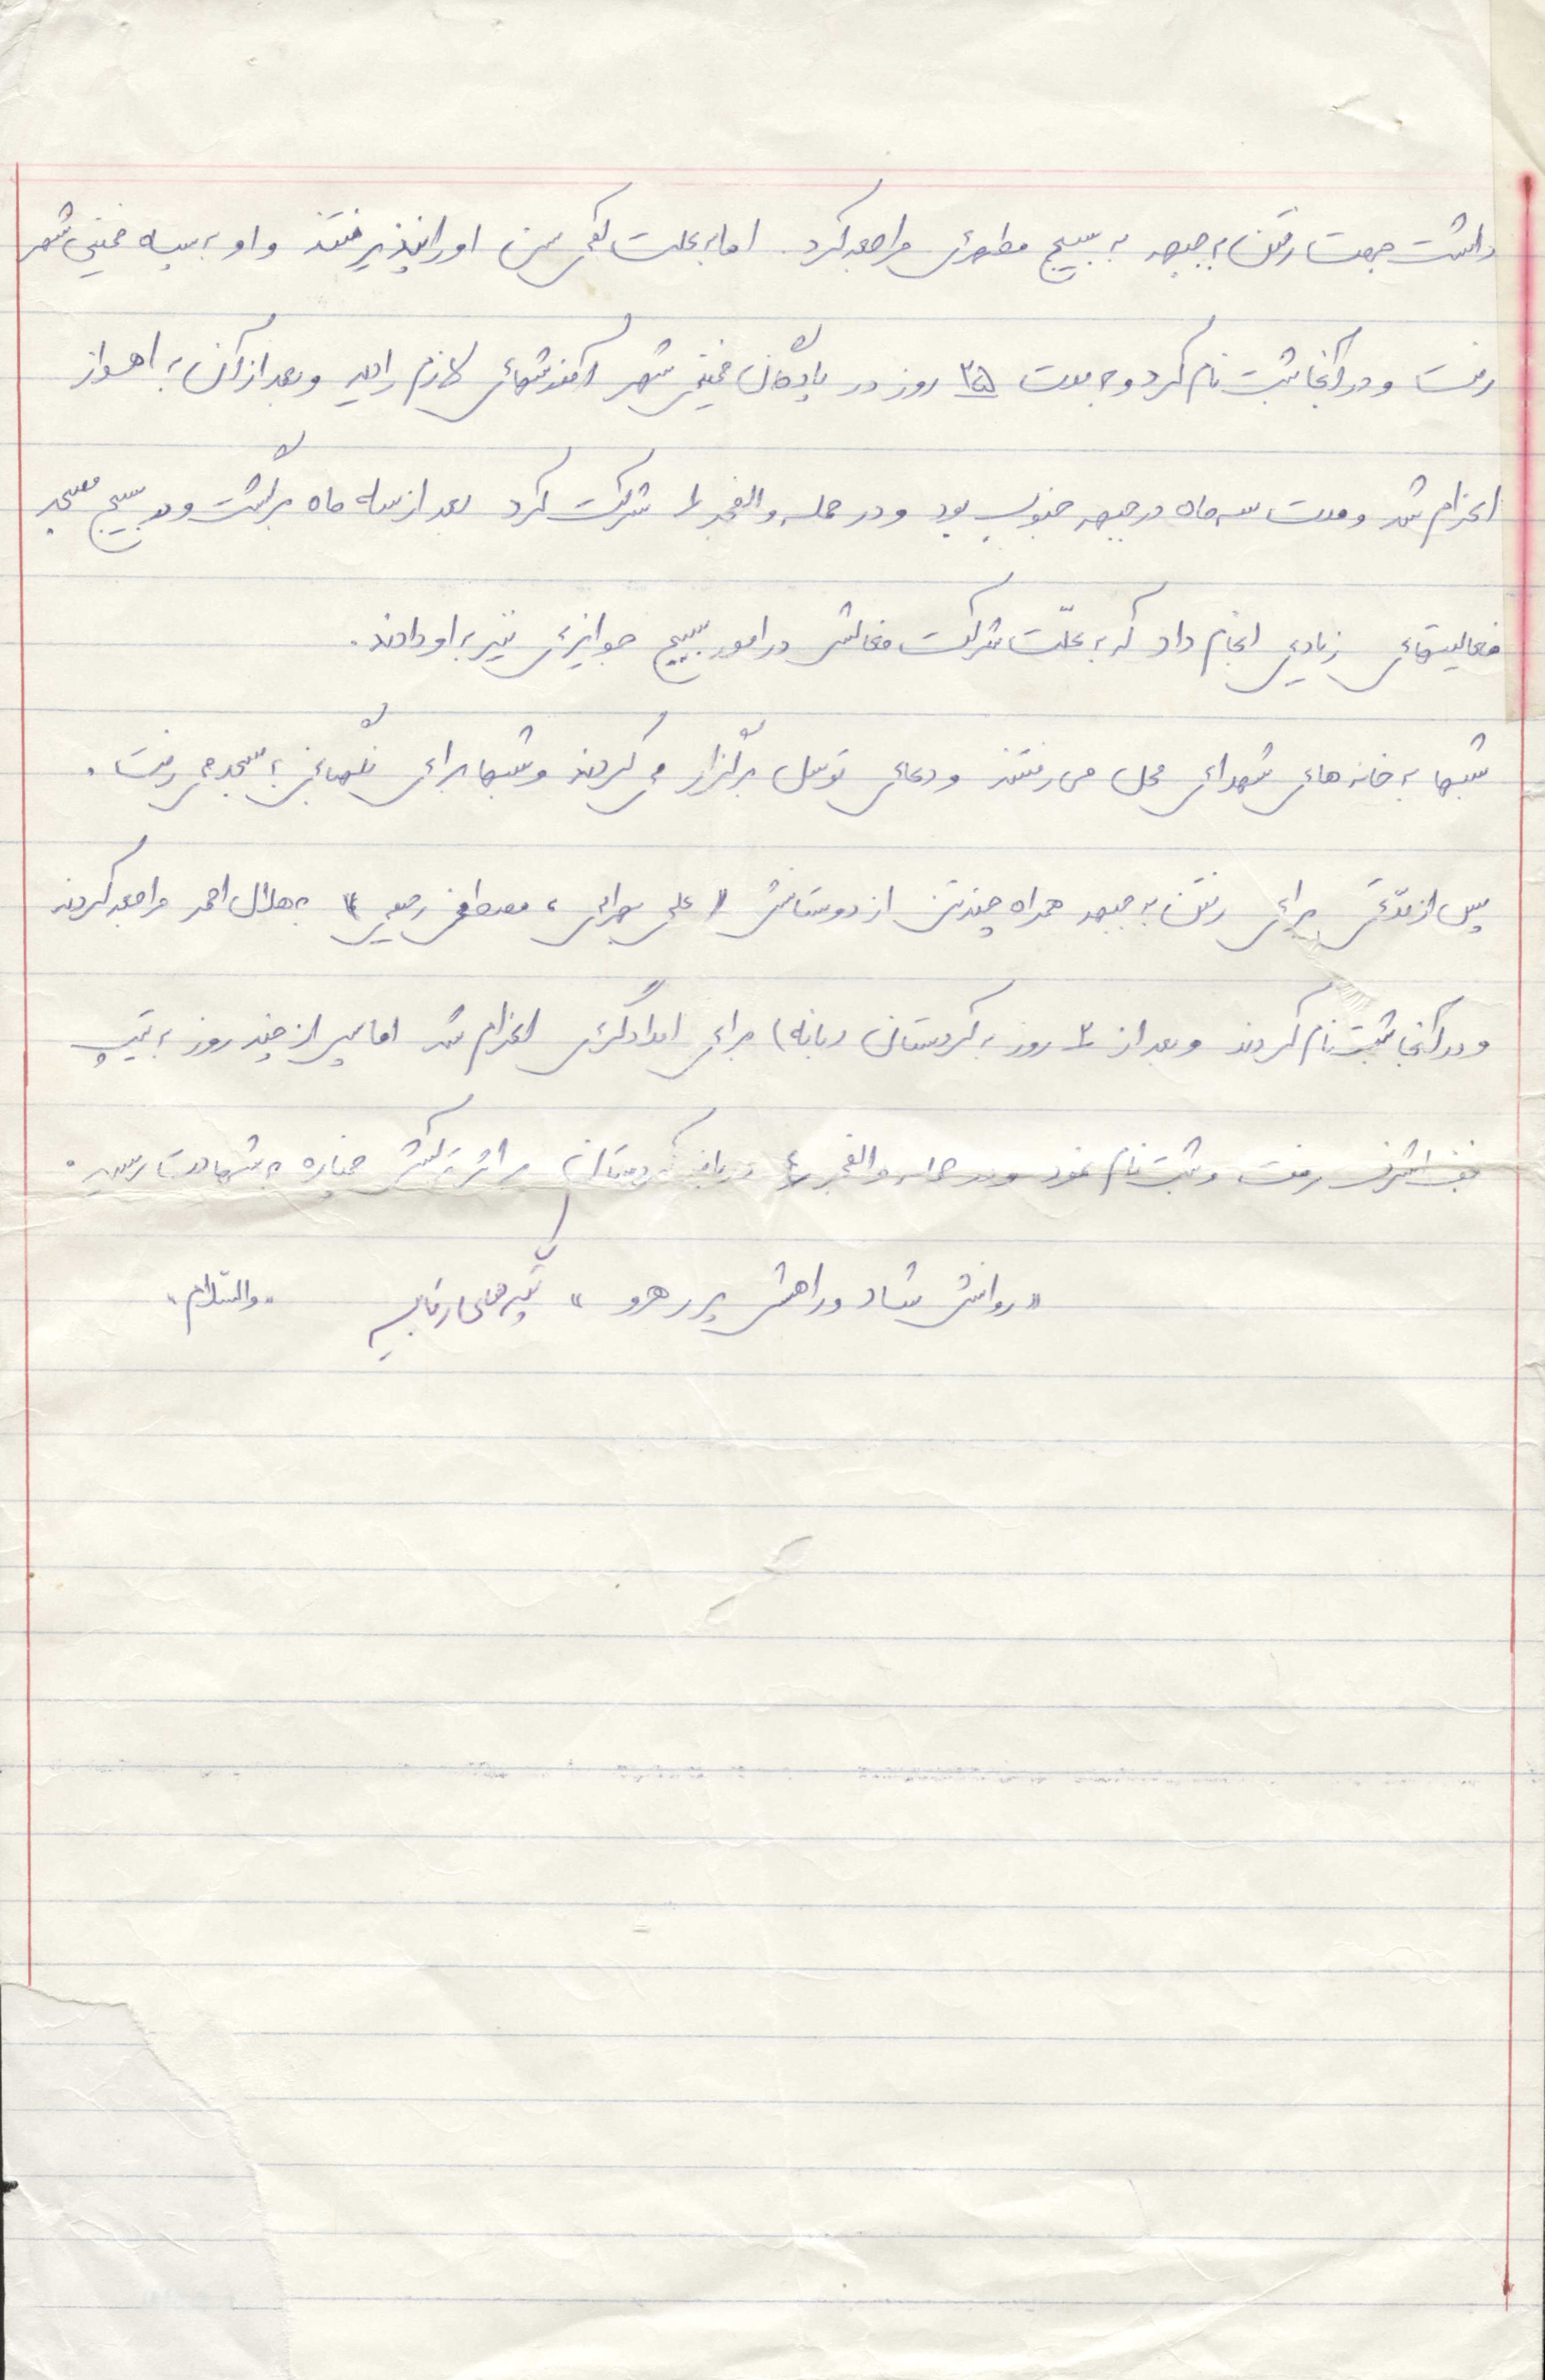 داشت جهت رفتن به جبهه به بسیج مطهری مراجعه کرد. اما به علت کمی سن او را نپذیرفتند و او به سپاه خمینی شهر
رفت و در آنجا ثبت نام کرد و به مدت ۳۵ روز در پادگان خمینی شهر آموزشهای لازم را دید و بعد از آن به اهواز
اعزام شد و مدت سه ماه در جبهه جنوب بود و در حمله والفجر ۱ شرکت کرد بعد از سه ماه برگشت و در بسیج مسجد
فعالیتهای زیادی انجام داد که به علّت شرکت فعالش در امور بسیج جوایزی نیز به او دادند.
شبها به خانه های شهدای محل می رفتند و دعای توسل برگزار می کردند و شبها برای نگهبانی به مسجد می رفت.
پس از مدّتی برای رفتن به جبهه همراه چند تن از دوستانش (علی بهرامی، مصطفی رجبی) به هلال احمر مراجعه کردند
و در آنجا ثبت نام کردند و بعد از روز به کردستان (بانه) برای امدادگری اعزام شد اما پس از چند روز به تیپ
نجف اشرف رفت و ثبت نام نمود و در حمله والفجر ۴ در کردستان بر اثر ترکش خمپاره به شهادت رسید.
«روانش شاد و راهش پر رهرو» «والسّلام»